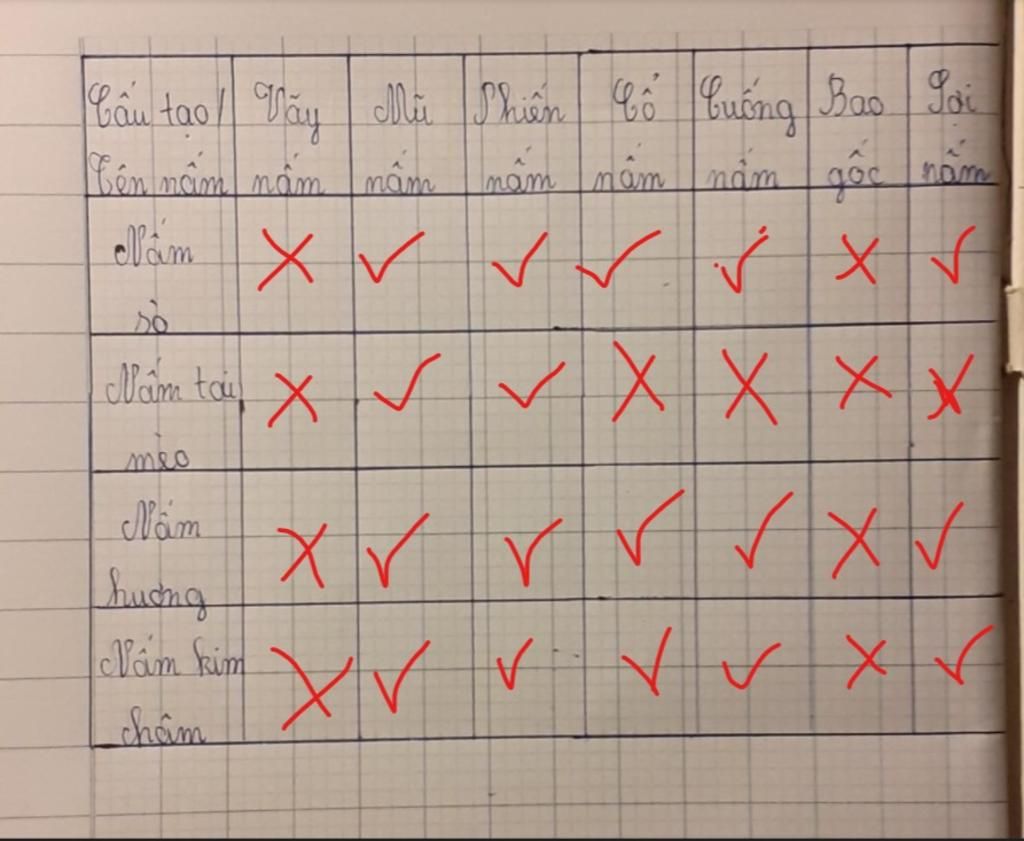 Cấu tạo/ Vãy Mũ Phiến Cổ Cuống Bao Sợi
Tên nấm nấm nấm nấm nấm nấm gốc nấm
Nấm X ✓ ✓ ✓ ✓ X ✓
sò
Nấm tai X ✓ ✓ X X X X
mèo
Nấm X ✓ ✓ ✓ ✓ X ✓
hương
Nấm kim X ✓ ✓ ✓ ✓ X ✓
châm